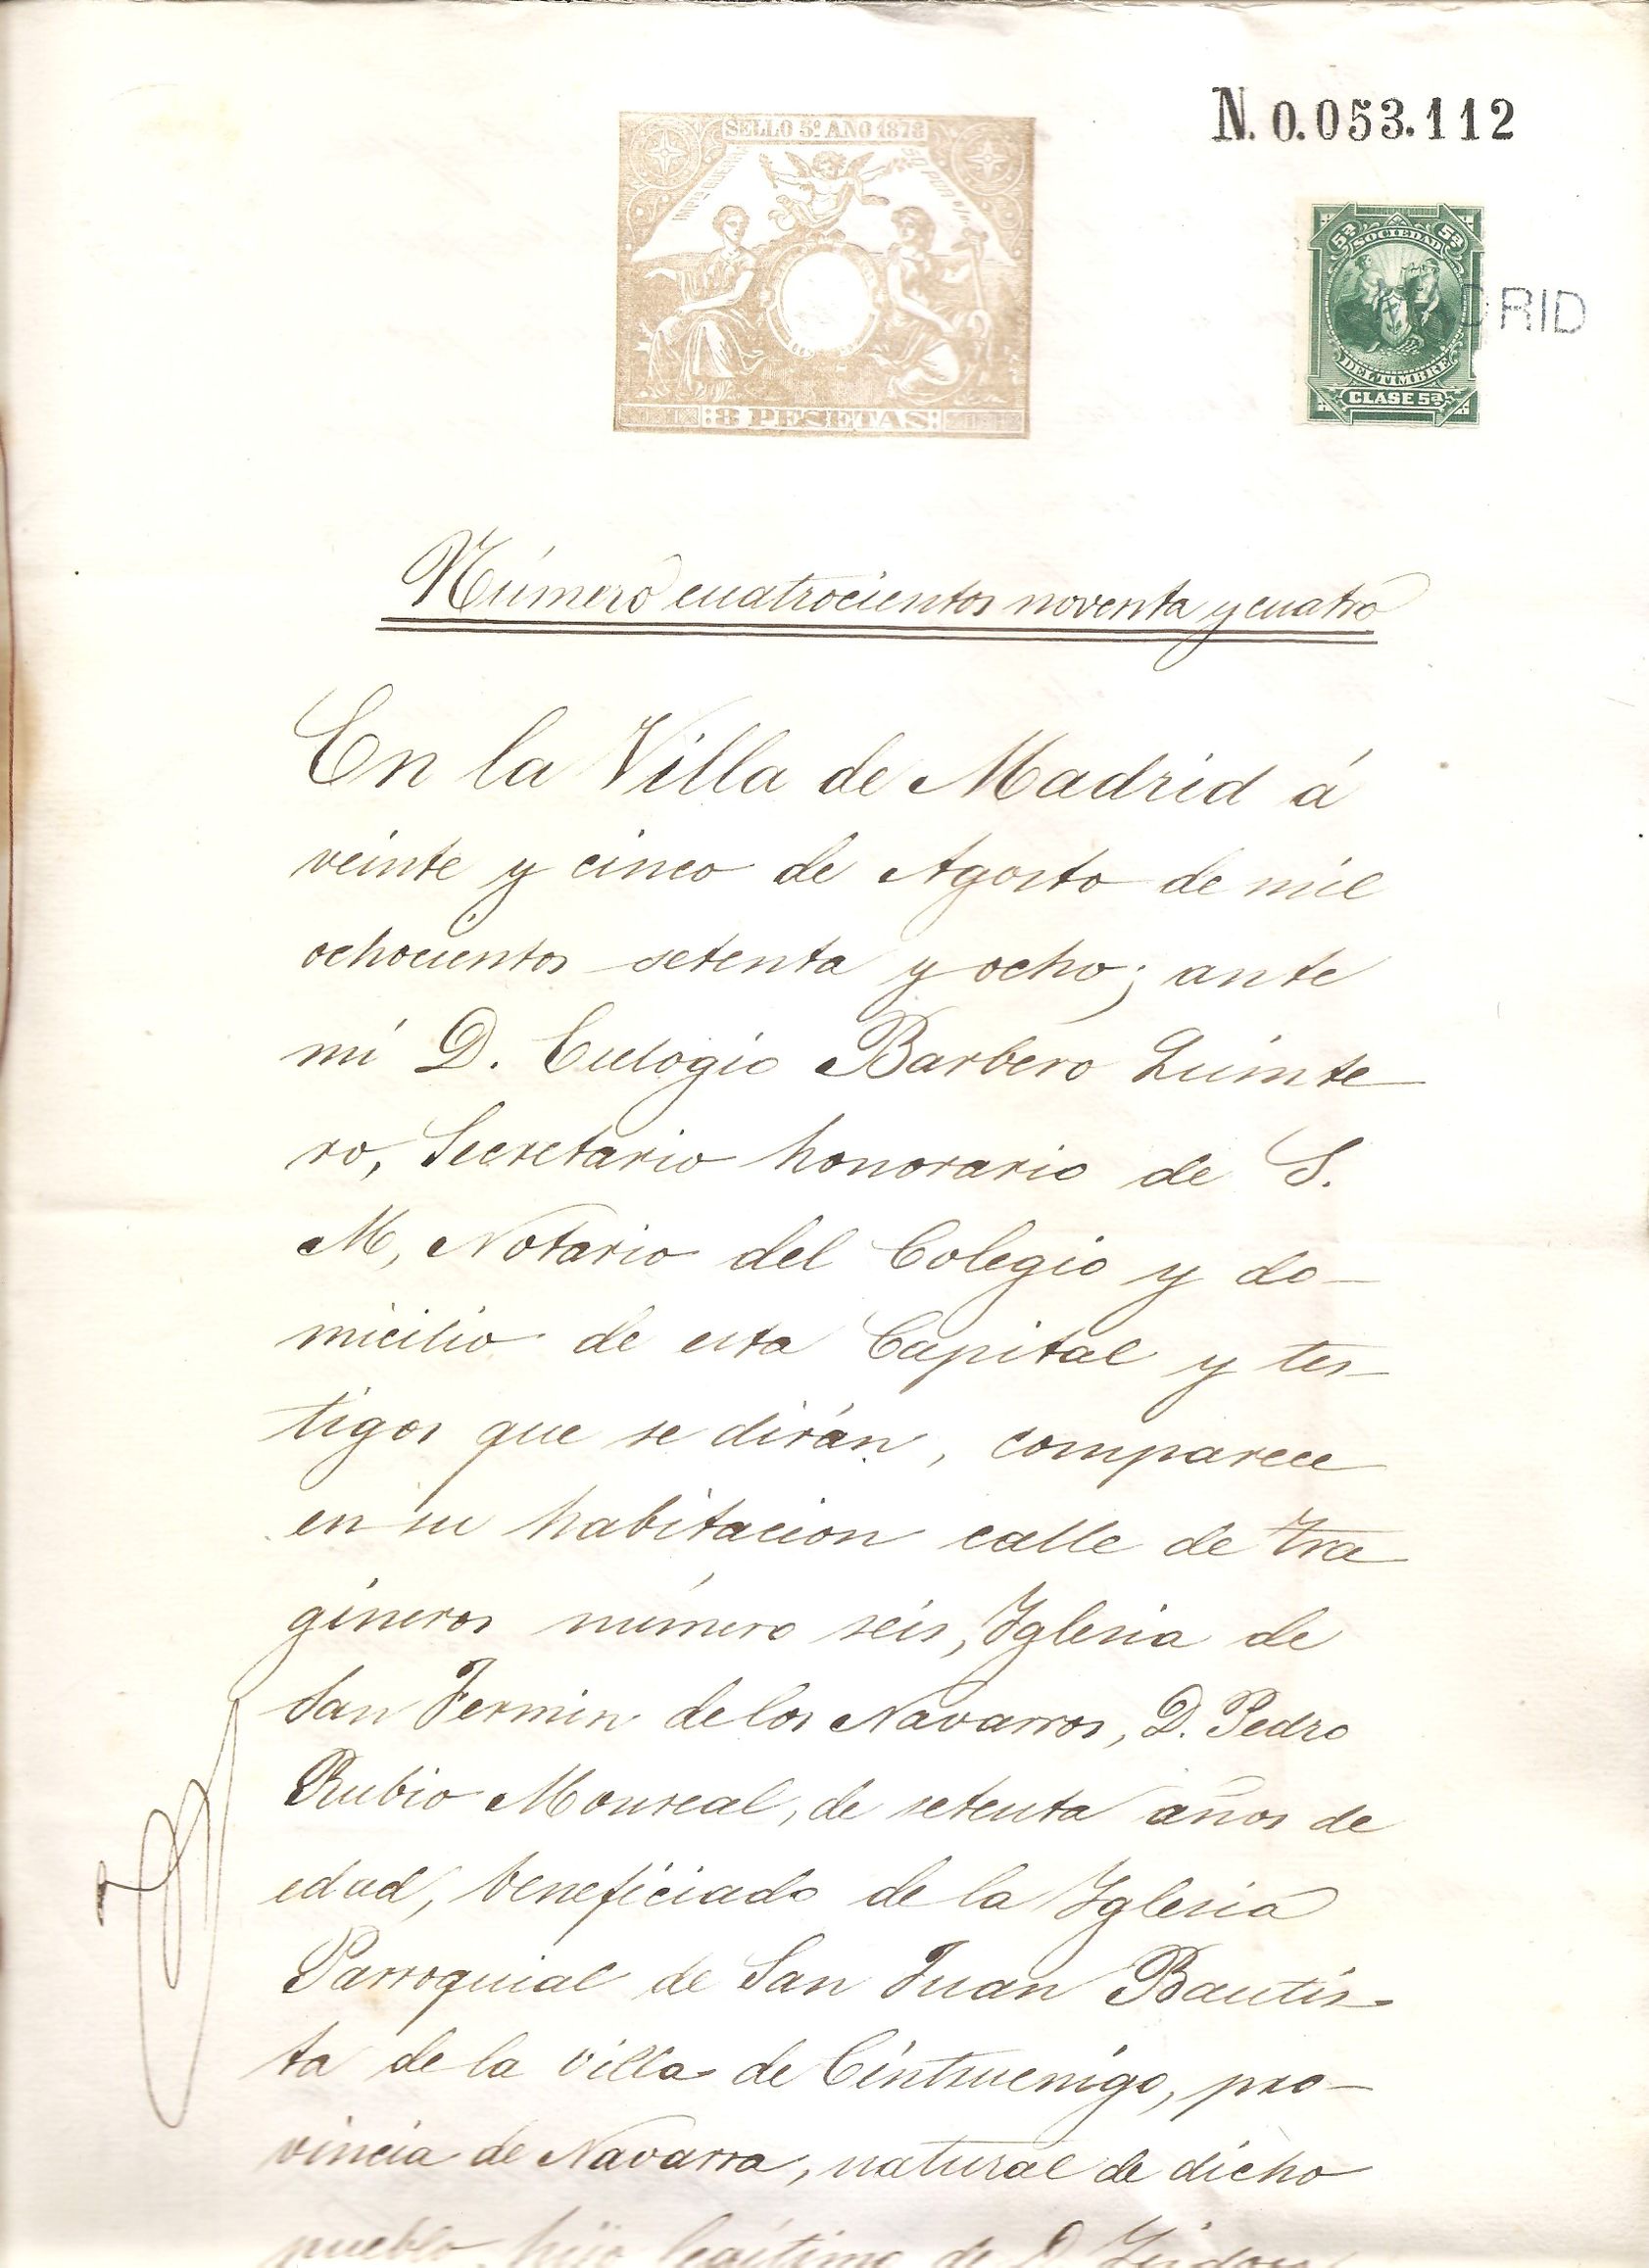 N. 0.053.112
SELLO 5º AÑO 1878
8 PESETAS
5ª 5ª
SOCIEDAD
DEL TIMBRE
CLASE 5ª
MADRID
Número cuatrocientos noventa y cuatro
En la Villa de Madrid á
veinte y cinco de Agosto de mil
ochocientos setenta y ocho; ante
mí D. Eulogio Barbero Quinte
ro, Secretario honorario de S.
M, Notario del Colegio y do-
micilio de esta Capital y tes-
tigos que se dirán, comparece
en su habitacion calle de Tra
gineros número seis, Iglesia de
San Fermin de los Navarros, D. Pedro
Rubio Monreal, de setenta años de
edad, beneficiado de la Iglesia
Parroquial de San Juan Bautis-
ta de la villa de Cintruenigo, pro-
vincia de Navarra, natural de dicho
pueblo, hijo legítimo de D.